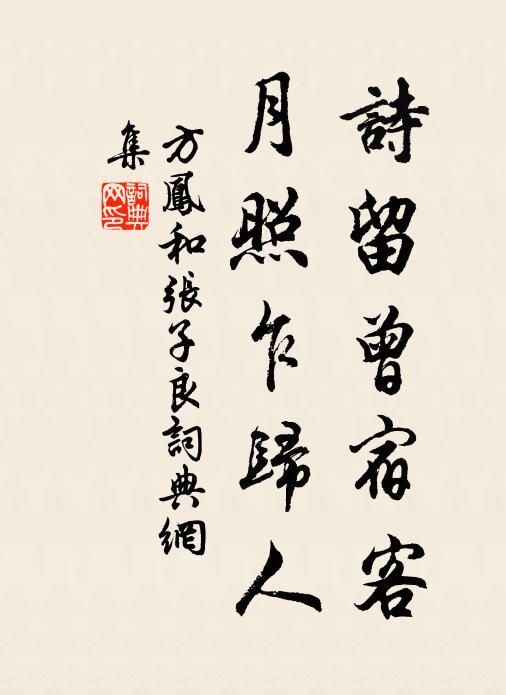 詩留曾宿客
月照乍歸人
方鳳和張子良詞典網
集
詞典
网印